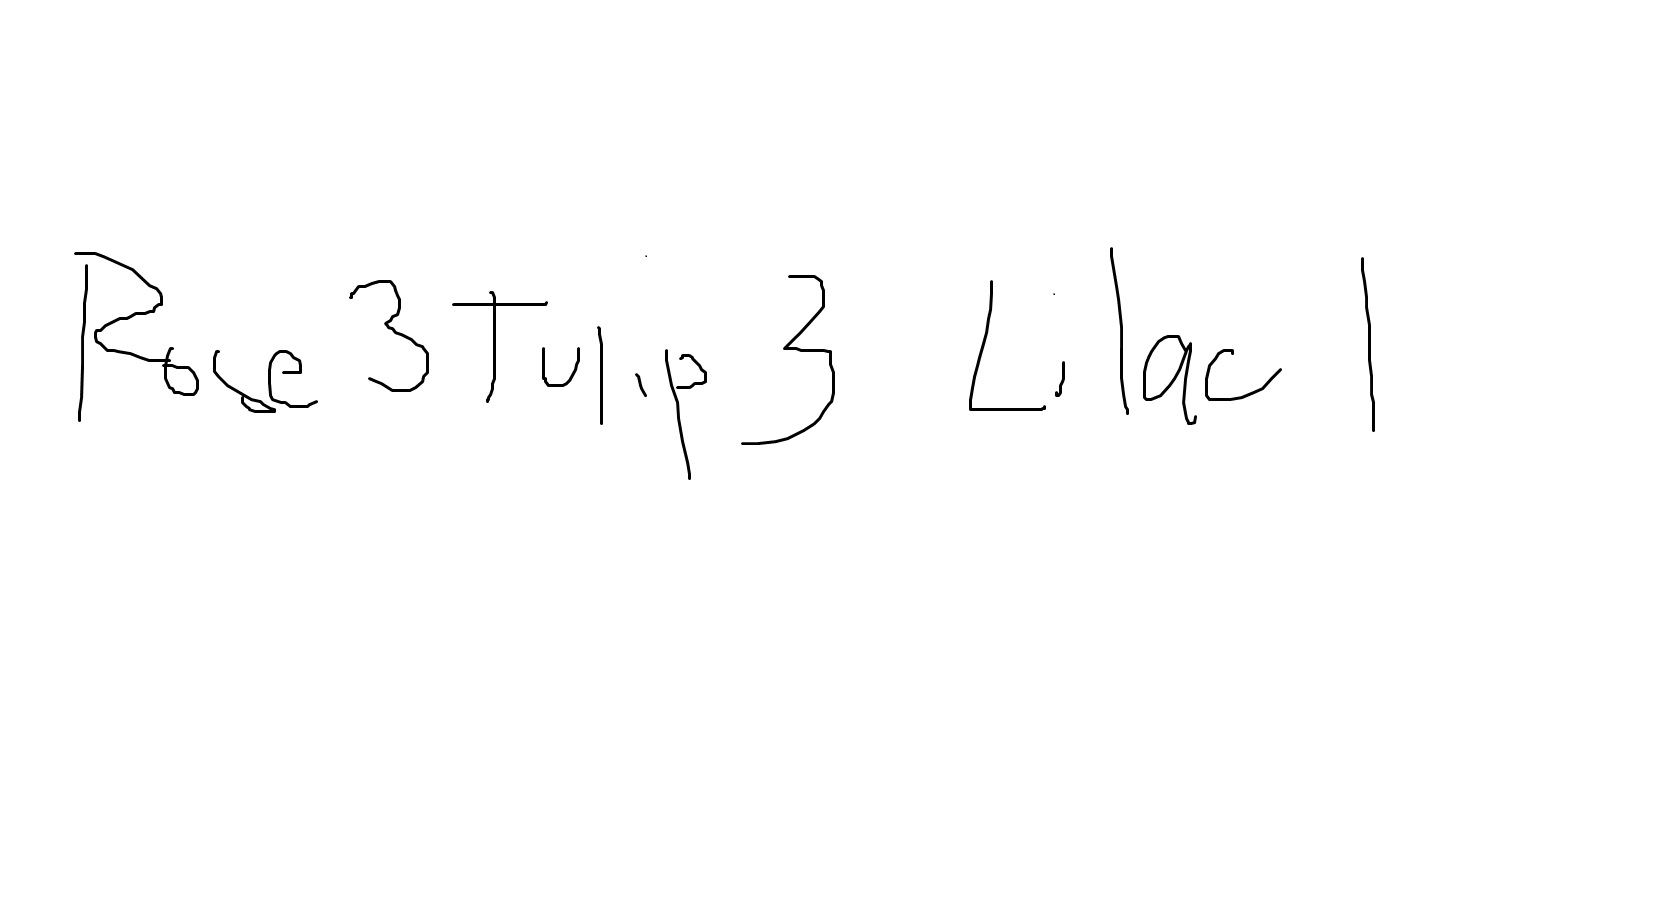 Rose 3 Tulip 3 Lilac 1